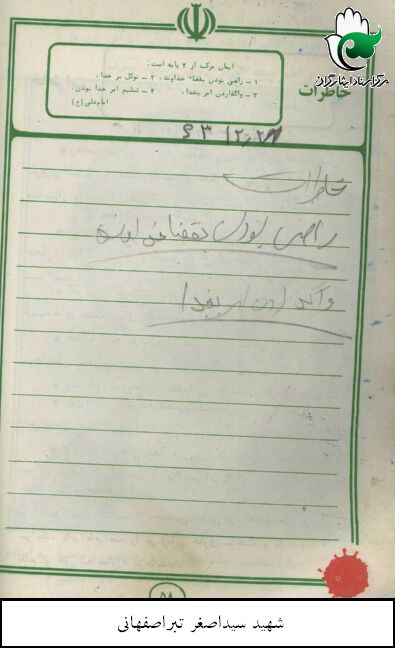 مرکز اسناد ایثارگران
خاطرات
ایمان مرکب از ۴ پایه است:
۱ – راضی بودن بقضاء خداوند، ۲ – توکل بر خدا،
۳ – واگذاردن امر بخدا، ۴ – تسلیم امر خدا بودن.
امام علی (ع)
۶۳/۲/۲۱
خاطرات
راضی بودن بقضا خداوند
واگذاردن امر بخدا
۵۸
شهید سیداصغر تبراصفهانی